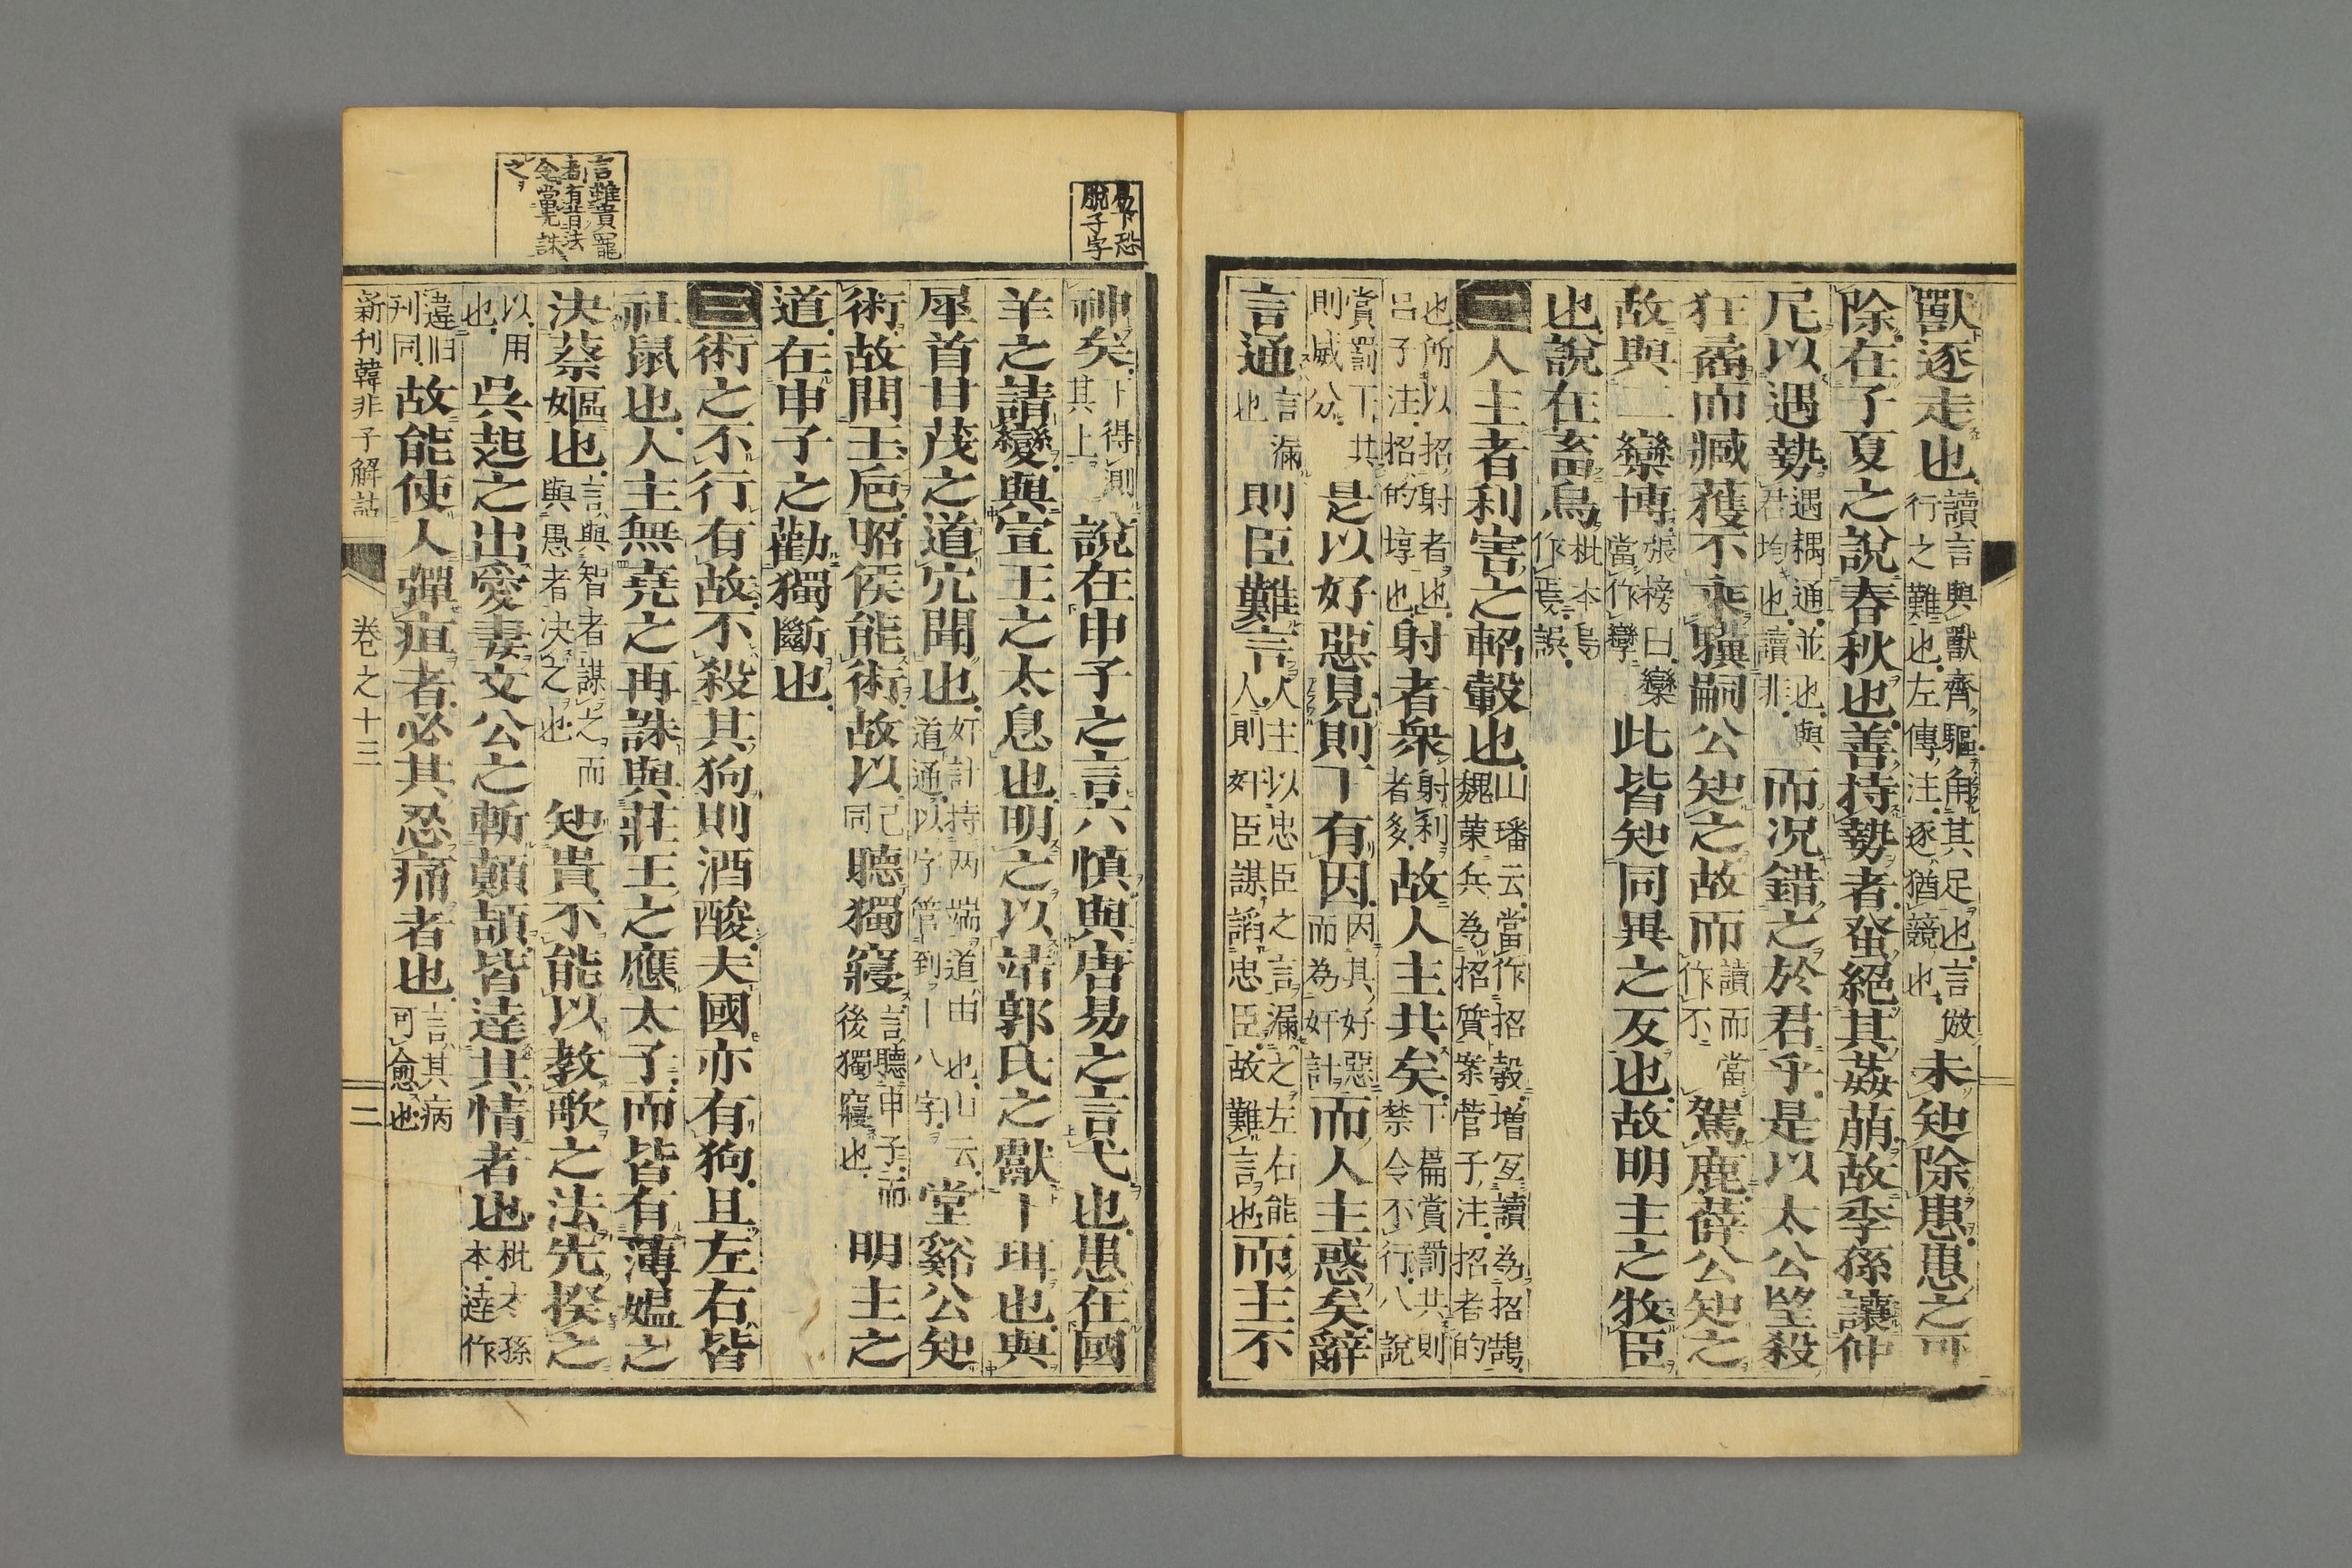 獸逐走也讀言與獸齊驅角其足也言倣行之難也左傳注逐猶競也未知除患患之可
除在子夏之說春秋也善持勢者蚤絕其姦萌故季孫讓仲
尼以遇勢遇耦通並也與君均也讀非而况錯之於君乎是以太公望殺
狂矞而臧獲不乘驥嗣公知之故而讀而當作不駕鹿薛公知之
故與二欒博張榜曰欒當作孿此皆知同異之反也故明主之牧臣
也說在畜烏枇本烏作焉誤
二人主者利害之軺轂也山璠云當作招彀増冝讀為招鵠魏菓兵為招質案管子注招者的
也所以招射者也呂子注招的埻也射者衆射利者多故人主共矣下篇賞罰共則禁令不行八說
賞罰下共則威分是以好惡見則下有因因其好惡而為奸計而人主惑矣辭
言通言漏也則臣難言人主以忠臣之言漏之左右能人則奸臣謀謟忠臣故難言也而主不
神矣下得測其上說在申子之言六慎與唐易之言弋也患在國
羊之請變與宣王之太息也明之以靖郭氏之獻十珥也與
犀首甘茂之道穴聞也奸計持两端道由也山云道通以字管到一八字堂谿公知
術故問玉巵昭侯能術故以己同聽獨寢言聽申子而後獨寢也明主之
道在申子之勸獨斷也
三術之不行有故不殺其狗則酒酸夫國亦有狗且左右皆
社鼠也人主無堯之再誅與莊王之應太子而皆有薄媼之
決蔡嫗也言與智者謀之而與愚者决之也知貴不能以教歌之法先揆之
以用也吳起之出愛妻文公之斬顛頡皆違其情者也枇本孫本違作
違旧刊同故能使人彈疽者必其忍痛者也言其病可愈也
新刊韓非子解詁 卷之十三 二
易下恐
脫子字
言雖貴寵
者有背法
令當先誅
之